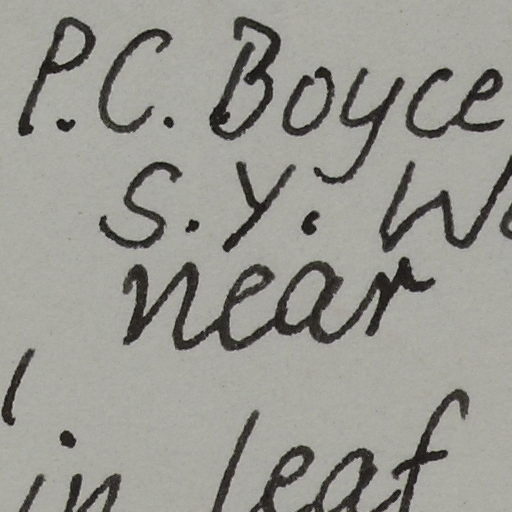 P.C. Boyce
S.Y. W
near
in leaf